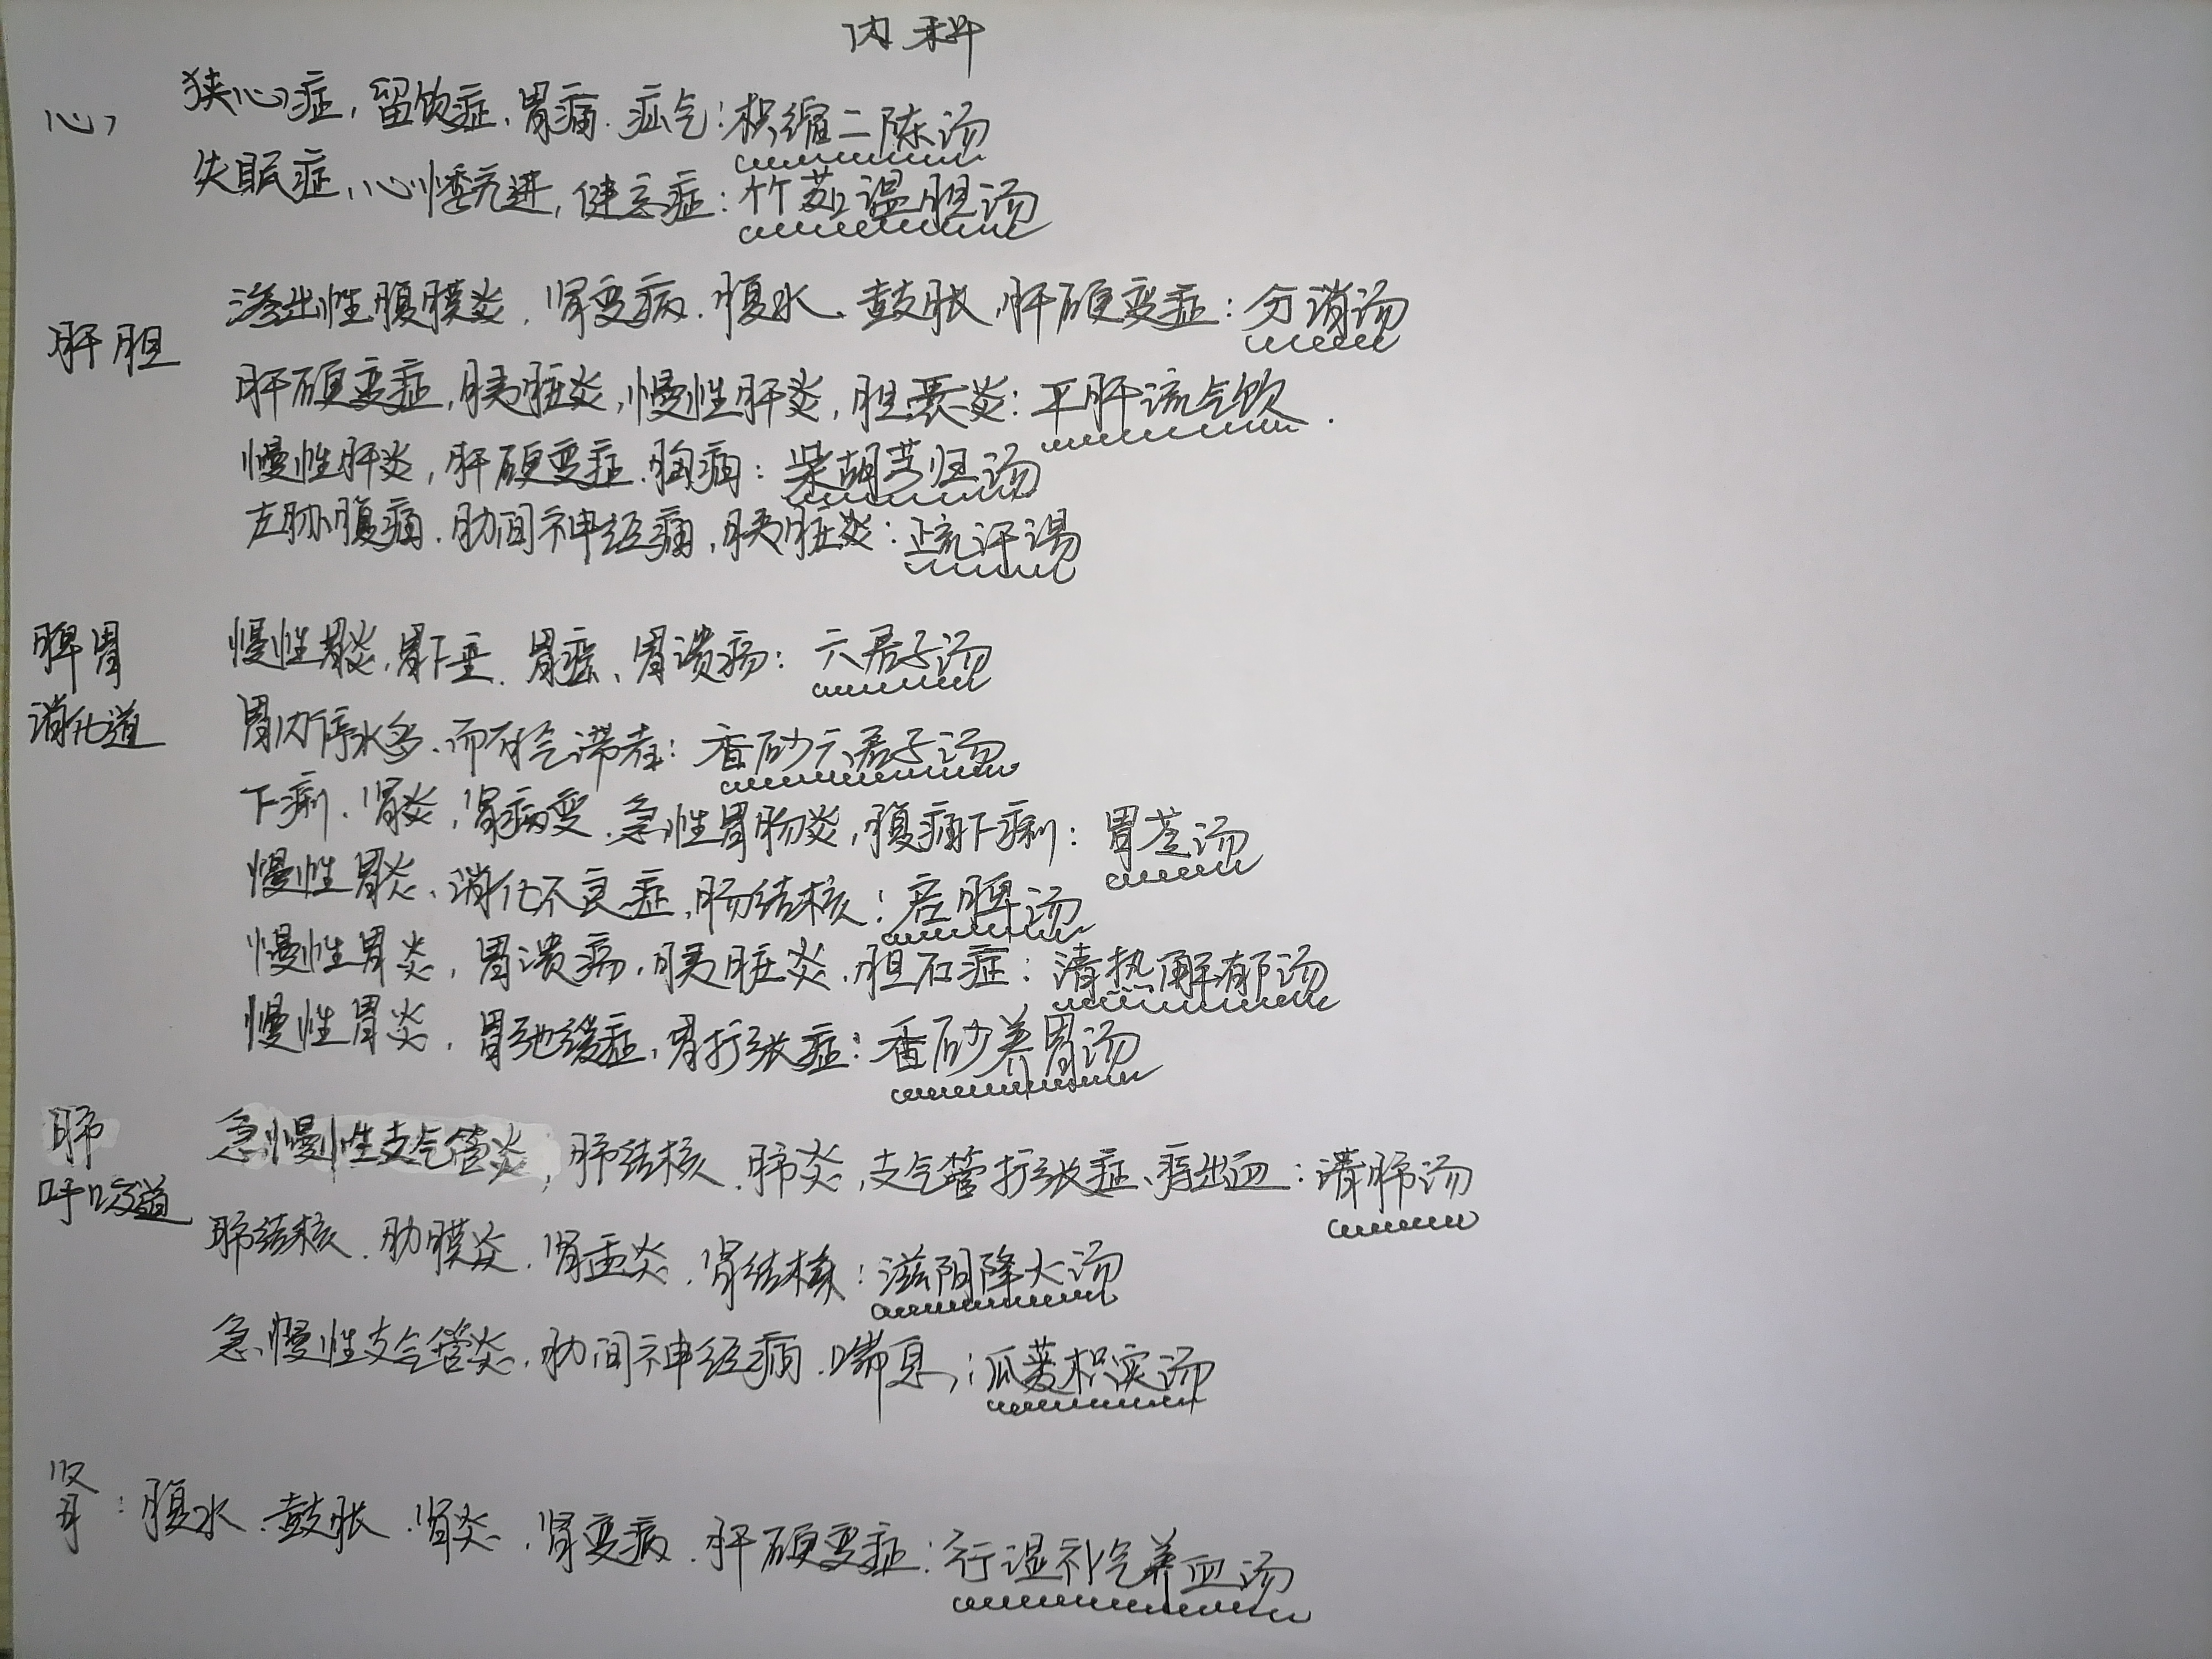 内科
心 狭心症,留饮症,胃痛.疝气:枳缩二陈汤
失眠症,心悸亢进,健忘症:竹茹温胆汤
肝胆 渗出性腹膜炎,肾变病.腹水.鼓胀,肝硬变症:分消汤
肝硬变症,胰脏炎,慢性肝炎,胆囊炎:平肝流气饮.
慢性肝炎,肝硬变症.胸痛:柴胡芎归汤
左胁腹痛.肋间神经痛,胰脏炎:疏汗汤
脾胃 慢性胃炎,胃下垂.胃癌、胃溃疡:六君子汤
消化道 胃内停水多.而有气滞者:香砂六君子汤
下痢.肾炎,肾病变.急性胃肠炎,腹痛下痢:胃苓汤
慢性胃炎、消化不良症,肠结核:启脾汤
慢性胃炎,胃溃疡,胰脏炎.胆石症:清热解郁汤
慢性胃炎,胃弛缓症,胃扩张症:香砂养胃汤
肺 急慢性支气管炎,肺结核.肺炎,支气管扩张症、痔出血:清肺汤
呼吸道
肺结核.肋膜炎.肾盂炎.肾结核:滋阴降火汤
急慢性支气管炎.肋间神经痛.喘息:瓜蒌枳实汤
肾:腹水.鼓胀.肾炎.肾变病.肝硬变症:行湿补气养血汤